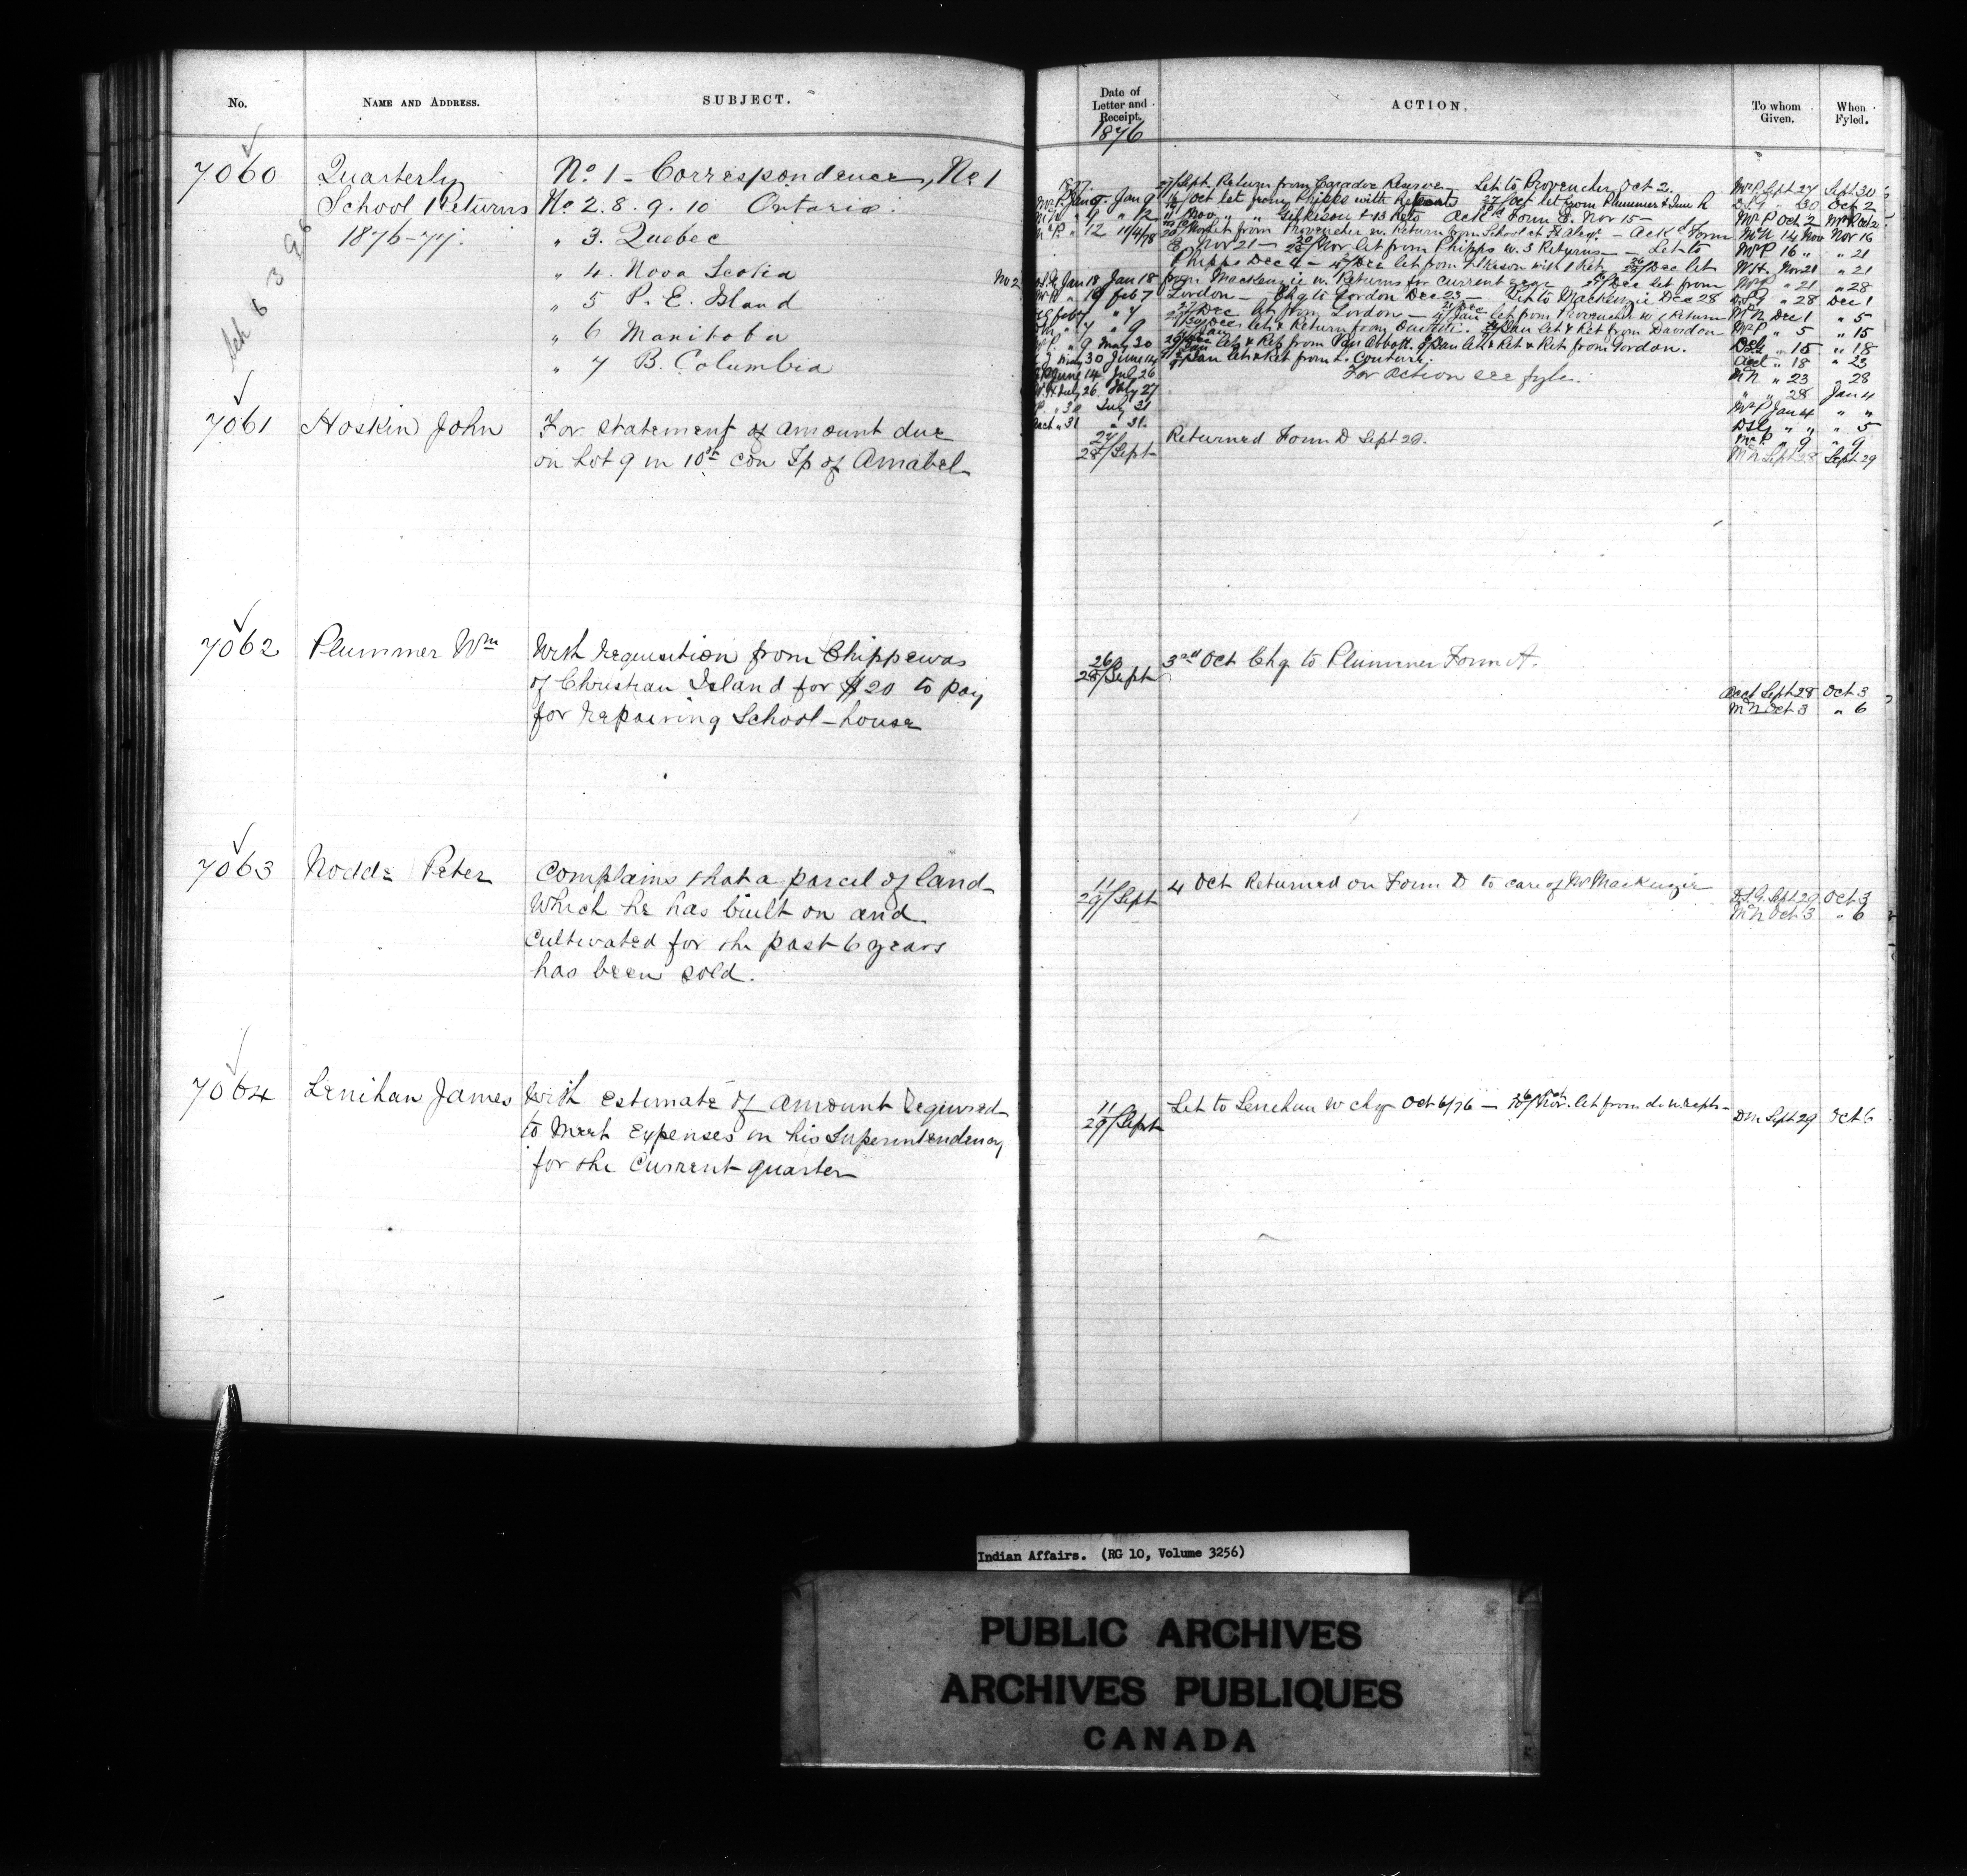 No. NAME AND ADDRESS. SUBJECT.
7060 Quarterly No 1 - Correspondence, No 1
School Returns No 2. 8. 9. 10 Ontario.
1876-77. " 3. Quebec
" 4. Nova Scotia
" 5 P. E. Island
" 6 Manitoba
" 7 B. Columbia
7061 Hoskin John For statement of amount due
on Lot 9 in 10th con Tp of Amabel
7062 Plummer Wm With requisition from Chippewas
of Christian Island for $20 to pay
for repairing School-house
7063 Nodde Peter Complains that a parcel of land
which he has built on and
cultivated for the past 6 years
has been sold.
7064 Lenihan James With estimate of amount required
to meet expenses in his Superintendency
for the Current quarter
Date of Letter and Receipt. ACTION. To whom Given. When Fyled.
1876
27/Sept Return from Caradoc Reserve Let to Provencher Oct 2. Mr P. Sept 27 Sept 30
Oct let from Phipps with 27/Oct let from Plummer D.S.G. " 30 Oct 2
Nov " " Gilkison + 13 Rets Ackd Form E. Nov 15 - Mr P Oct 2
let from Provencher w. Return from School at - Ackd Form McN 14 Nov Nov 16
E Nov 21 - Nov let from Phipps w. 3 Returns - Let to Mr P 16 " " 21
Phipps Dec 4 - Dec let from Gilkison with 1 Ret Dec let Nov 21 " 21
No 2 Jan 18 Jan 18 from Mackenzie w. Returns for current year Dec let from Mr P " 21 " 28
" 19 Feb 7 Gordon - Chq to Gordon Dec 23 - Let to Mackenzie Dec 28 D.S.G " 28 Dec 1
Dec let from Gordon - Jan let from Provencher w 1 Return McN Dec 1 " 5
let & Return from Jan let & Ret from Davidson Mr P " 5 " 15
" 9 May 30 let & Ret from Van Abbott. Jan let & Ret from Gordon. D.S.G " 15 " 18
May 30 June 14 Jan let & Ret from L. Couture. Acct " 18 " 23
June 14 July 26 For action see fyle. McN " 23 " 28
July 26 July 27 " " 28 Jan 4
" 30 July 31 Mr P Jan 4 " "
" 31 " 31 D.S.G " " " 5
Mr P " 9 " 9
27
28/Sept Returned Form D Sept 29. McN Sept 28 Sept 29
26
28/Sept 3rd Oct Chq to Plummer Form A.
Acct Sept 28 Oct 3
McN Oct 3 " 6
11
29/Sept 4 Oct Returned on Form D to care of Mr MacKenzie D.S.G. Sept 29 Oct 3
McN Oct 3 " 6
11
29/Sept Let to Lenihan w chq Oct 6/76 - Nov. let from do w. recpts - D.M. Sept 29 Oct 6
Indian Affairs. (RG 10, Volume 3256)
PUBLIC ARCHIVES
ARCHIVES PUBLIQUES
CANADA